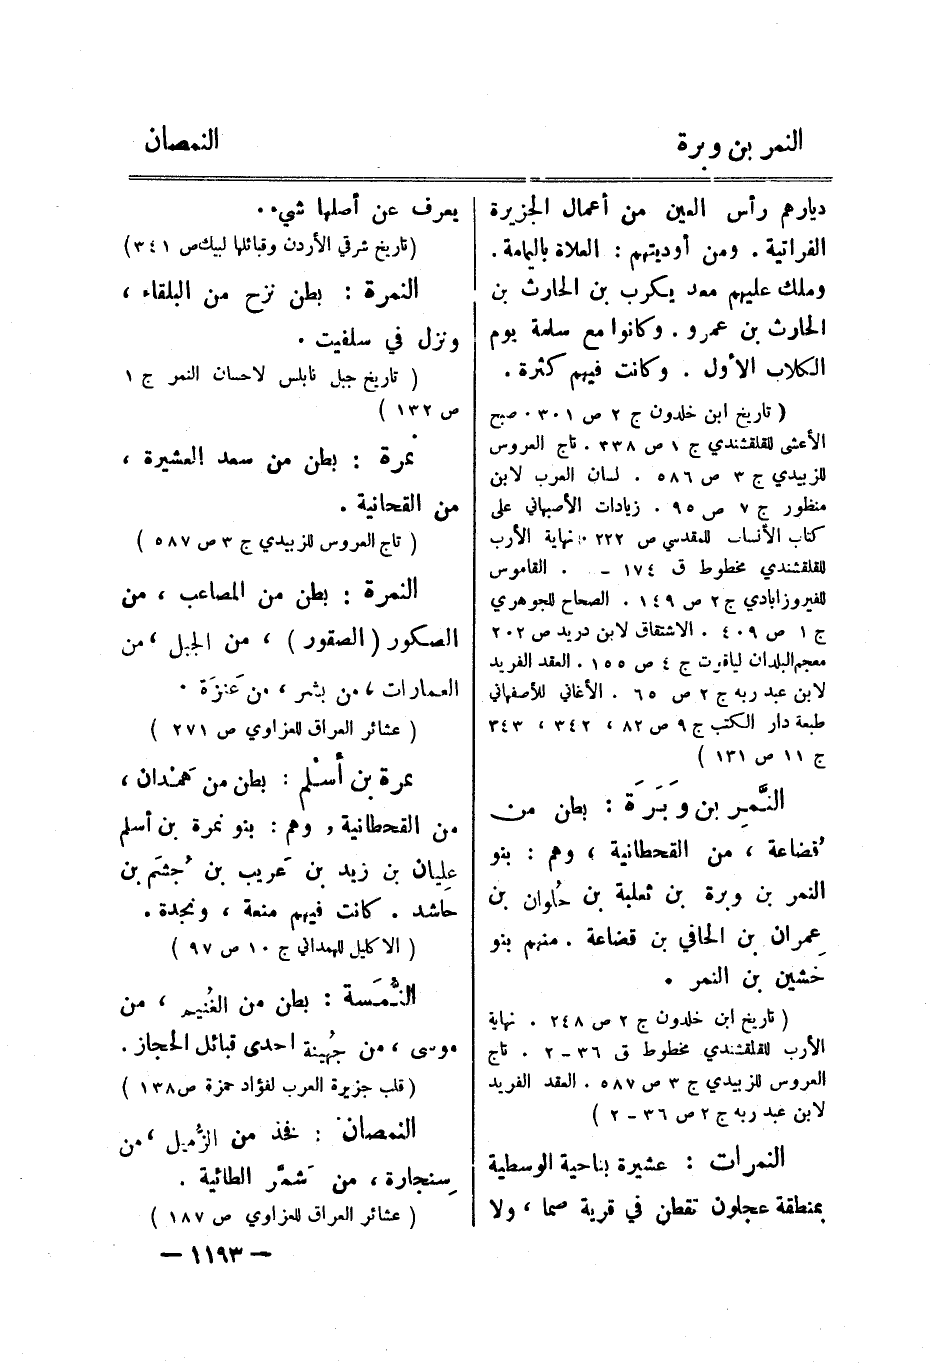 النمر بن وبرة
النمصان
ديارهم رأس العين من أعمال الجزيرة
الفراتية . ومن أوديتهم : العلاة باليمامة .
وملك عليهم معد يكرب بن الحارث بن
الحارث بن عمرو . وكانوا مع سلمة يوم
الكلاب الأول . وكانت فيهم كثرة .
( تاريخ ابن خلدون ج ٢ ص ٣٠١ . صبح
الأعشى للقلقشندي ج ١ ص ٣٣٨ . تاج العروس
للزبيدي ج ٣ ص ٥٨٦ . لسان العرب لابن
منظور ج ٧ ص ٩٥ . زيادات الأصبهاني على
كتاب الأنساب للمقدسي ص ٢٢٢ . نهاية الأرب
للقلقشندي مخطوط ق ١٧٤ – . القاموس
للفيروزابادي ج ٢ ص ١٤٩ . الصحاح للجوهري
ج ١ ص ٤٠٩ . الاشتقاق لابن دريد ص ٢٠٢
معجم البلدان لياقوت ج ٤ ص ١٥٥ . العقد الفريد
لابن عبد ربه ج ٢ ص ٦٥ . الأغاني للأصفهاني
طبعة دار الكتب ج ٩ ص ٨٢ ، ٣٤٢ ، ٣٤٣
ج ١١ ص ١٣١ )
النَّمِر بن وَبَرَة : بطن من
قُضاعة ، من القحطانية ، وهم : بنو
النمر بن وبرة بن ثعلبة بن حُلوان بن
عِمران بن الحافي بن قضاعة . منهم بنو
خشين بن النمر .
( تاريخ ابن خلدون ج ٢ ص ٢٤٨ . نهاية
الأرب للقلقشندي مخطوط ق ٣٦ – ٢ . تاج
العروس للزبيدي ج ٣ ص ٥٨٧ . العقد الفريد
لابن عبد ربه ج ٢ ص ٣٦ – ٢ )
النمرات : عشيرة بناحية الوسطية
بمنطقة عجلون تقطن في قرية صما ، ولا
يعرف عن أصلها شيء .
( تاريخ شرقي الأردن وقبائلها لبيك ص ٣٤١ )
النمرة : بطن نزح من البلقاء ،
ونزل في سلفيت .
( تاريخ جبل نابلس لاحسان النمر ج ١
ص ١٣٢ )
نمرة : بطن من سعد العشيرة ،
من القحانية .
( تاج العروس للزبيدي ج ٣ ص ٥٨٧ )
النمرة : بطن من المصاعب ، من
الصكور ( الصقور ) ، من الجبل ، من
العمارات ، من بشر ، من عَنزَة .
( عشائر العراق للعزاوي ص ٢٧١ )
نمرة بن أسْلَم : بطن من هَمْدان ،
من القحطانية ، وهم : بنو نمرة بن أسلم
عِليان بن زيد بن عَريب بن جُشَم بن
حاشد . كانت فيهم منعة ، ونجدة .
( الاكليل للهمداني ج ١٠ ص ٩٧ )
النُّمَسَة : بطن من الغُنيم ، من
موسى ، من جُهينة احدى قبائل الحجاز .
( قلب جزيرة العرب لفؤاد حمزة ص ١٣٨ )
النمصان : فخذ من الزُميل ، من
سِنجارة ، من شمَّر الطائية .
( عشائر العراق للعزاوي ص ١٨٧ )
– ١١٩٣ –